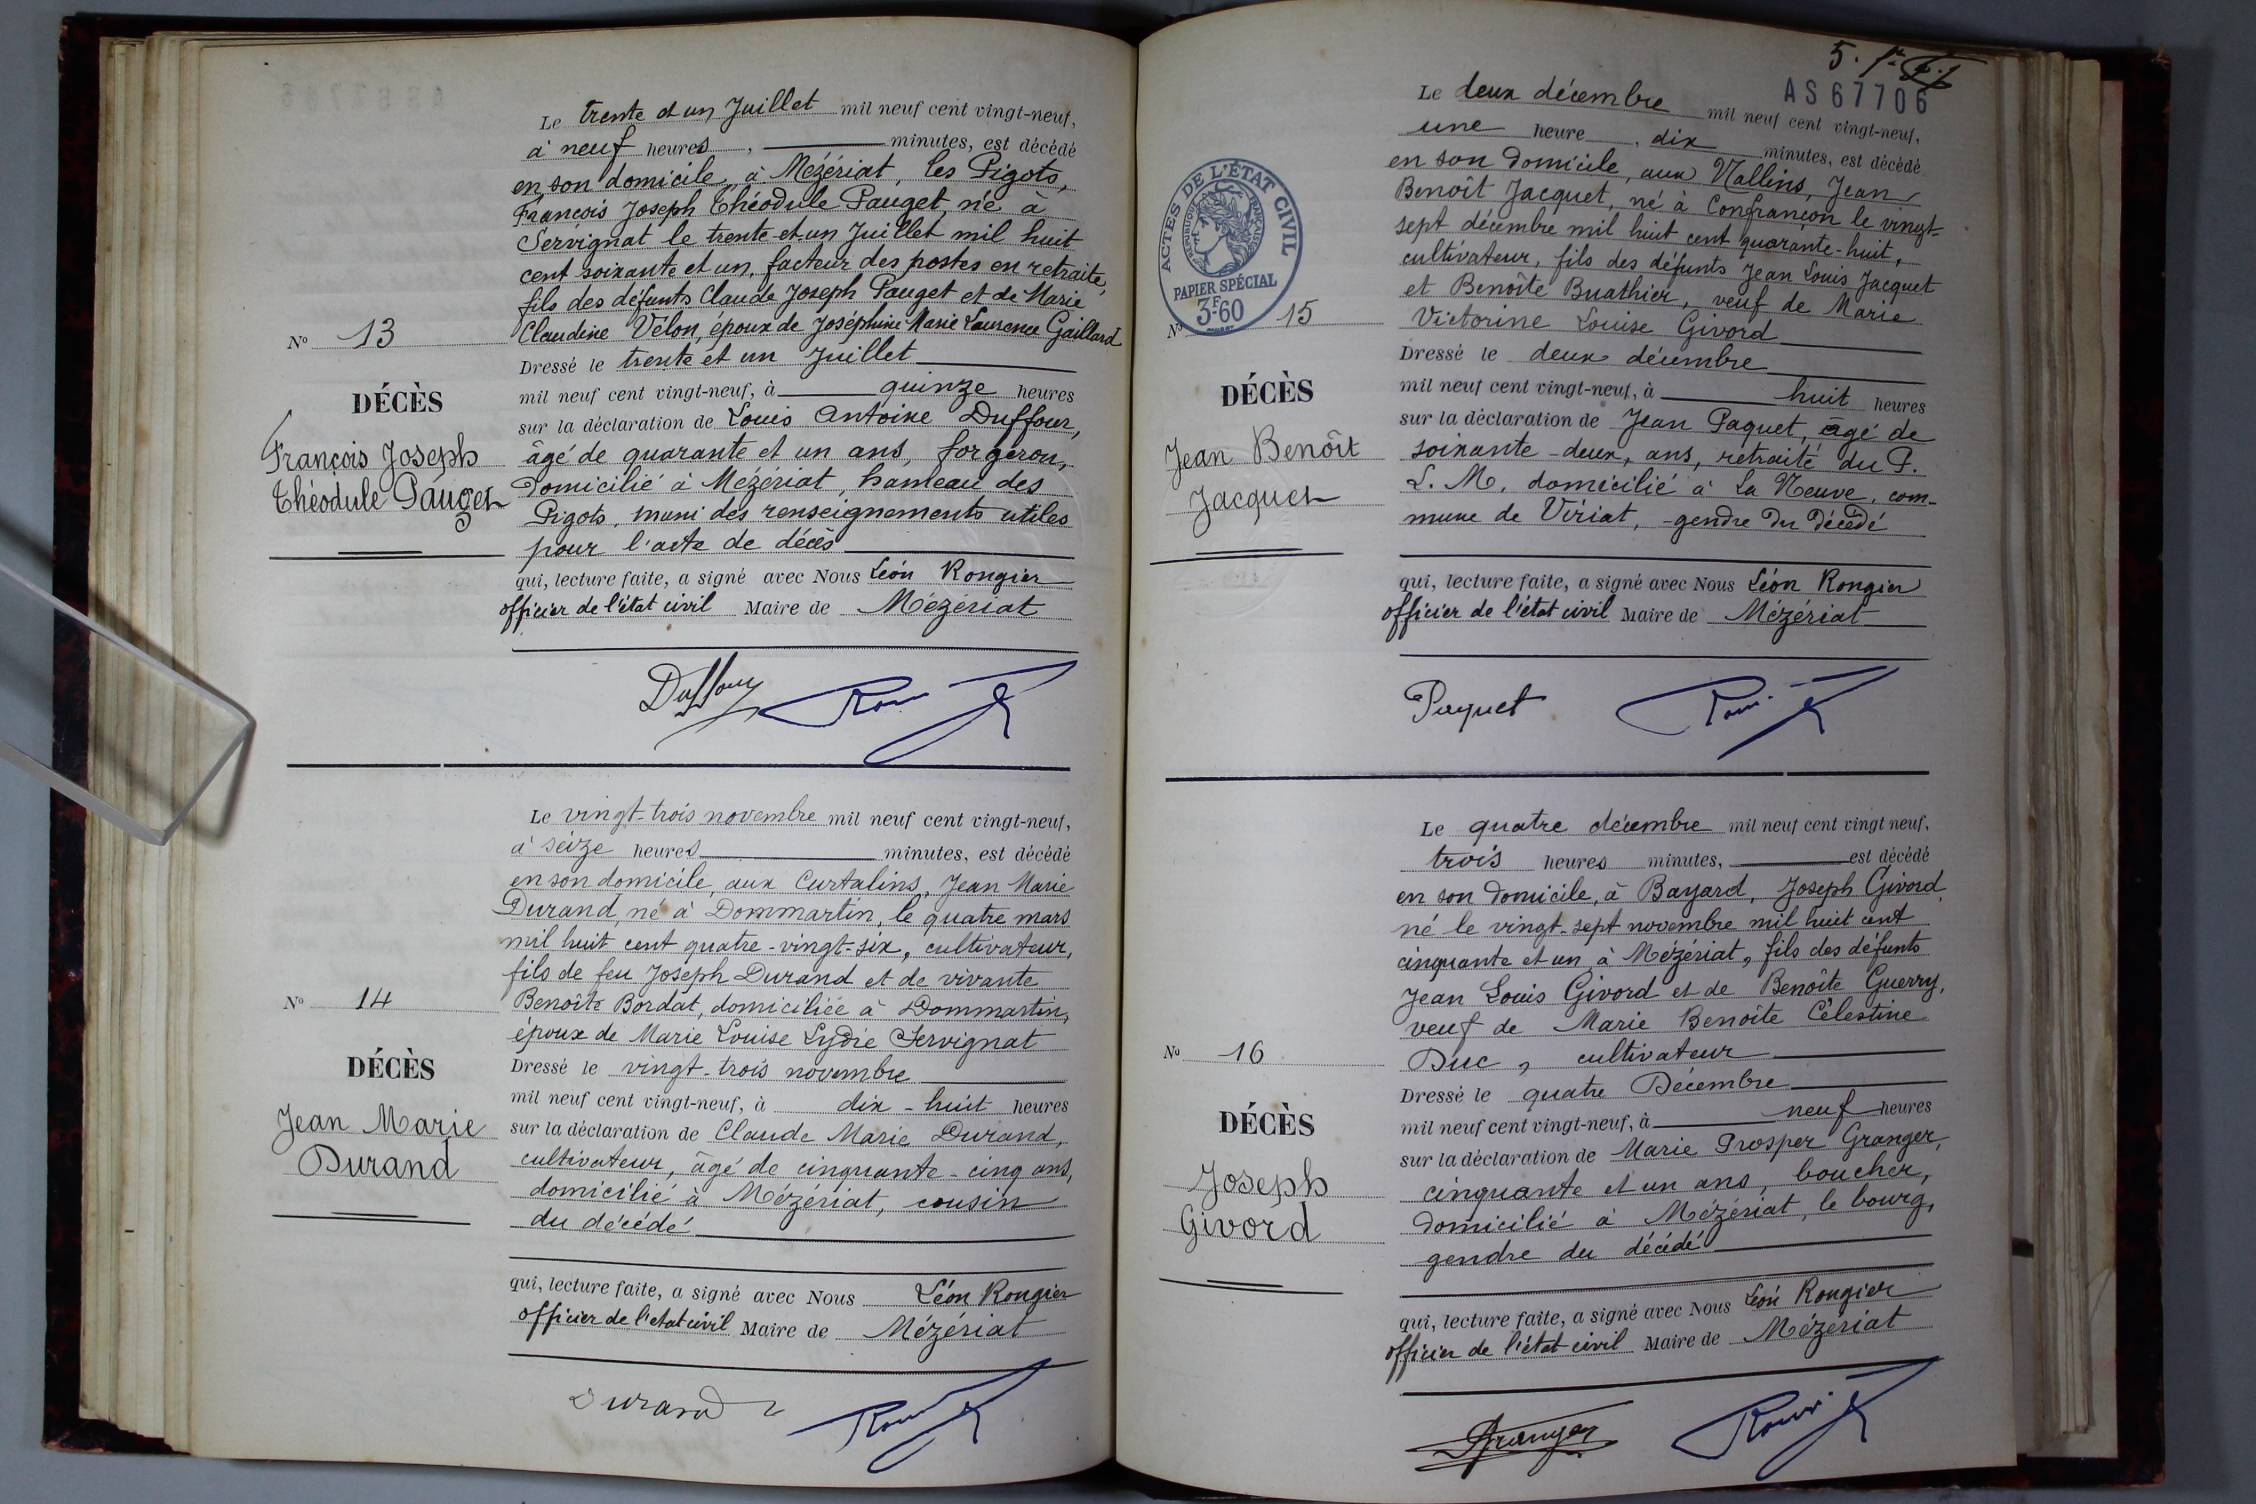 Le trente et un Juillet mil neuf cent vingt-neuf,
à neuf heures, minutes, est décédé
en son domicile, à Mézériat, les Pigots,
François Joseph Théodule Pauget, né à
Servignat le trente et un Juillet mil huit
cent soixante et un, facteur des postes en retraite,
fils des défunts Claude Joseph Pauget et de Marie
Claudine Vélon, époux de Joséphine Marie Laurence Gaillard
Dressé le trente et un Juillet
mil neuf cent vingt-neuf, à quinze heures
sur la déclaration de Louis Antoine Duffour,
âgé de quarante et un ans, forgeron,
domicilié à Mézériat, hameau des
Pigots, muni des renseignements utiles
pour l'acte de décès
qui, lecture faite, a signé avec Nous Léon Rongier
officier de l'état civil Maire de Mézériat
Nº 13
DÉCÈS
François Joseph
Théodule Pauget
Duffour
Le vingt-trois novembre mil neuf cent vingt-neuf,
à seize heures minutes, est décédé
en son domicile, aux Curtalins, Jean Marie
Durand, né à Dommartin, le quatre mars
mil huit cent quatre-vingt-six, cultivateur,
fils de feu Joseph Durand et de vivante
Benoîte Bordat, domiciliée à Dommartin,
époux de Marie Louise Lydie Servignat
Dressé le vingt-trois novembre
mil neuf cent vingt-neuf, à dix-huit heures
sur la déclaration de Claude Marie Durand,
cultivateur, âgé de cinquante-cinq ans,
domicilié à Mézériat, cousin
du décédé
qui, lecture faite, a signé avec Nous Léon Rongier
officier de l'état civil Maire de Mézériat
Nº 14
DÉCÈS
Jean Marie
Durand
Durand
5.
AS67706
Le deux décembre mil neuf cent vingt-neuf,
une heure, dix minutes, est décédé
en son domicile, aux Nallins, Jean
Benoît Jacquet, né à Confrançon le vingt-
sept décembre mil huit cent quarante-huit,
cultivateur, fils des défunts Jean Louis Jacquet
et Benoîte Buathier, veuf de Marie
Victorine Louise Givord
Dressé le deux décembre
mil neuf cent vingt-neuf, à huit heures
sur la déclaration de Jean Paquet, âgé de
soixante-deux, ans, retraité du P.
L. M. domicilié à La Neuve, com-
mune de Viriat, gendre du décédé
qui, lecture faite, a signé avec Nous Léon Rongier
officier de l'état civil Maire de Mézériat
ACTES DE L'ÉTAT CIVIL
RÉPUBLIQUE FRANÇAISE
PAPIER SPÉCIAL
3F60
Nº 15
DÉCÈS
Jean Benoît
Jacquet
Paquet
Le quatre décembre mil neuf cent vingt neuf,
trois heures minutes, est décédé
en son domicile, à Bayard, Joseph Givord,
né le vingt-sept novembre mil huit cent
cinquante et un à Mézériat, fils des défunts
Jean Louis Givord et de Benoîte Guerry,
veuf de Marie Benoîte Célestine
Duc, cultivateur
Dressé le quatre Décembre
mil neuf cent vingt-neuf, à neuf heures
sur la déclaration de Marie Prosper Granger,
cinquante et un ans, boucher,
domicilié à Mézériat, le bourg,
gendre du décédé
qui, lecture faite, a signé avec Nous Léon Rongier
officier de l'état civil Maire de Mézériat
Nº 16
DÉCÈS
Joseph
Givord
Granger